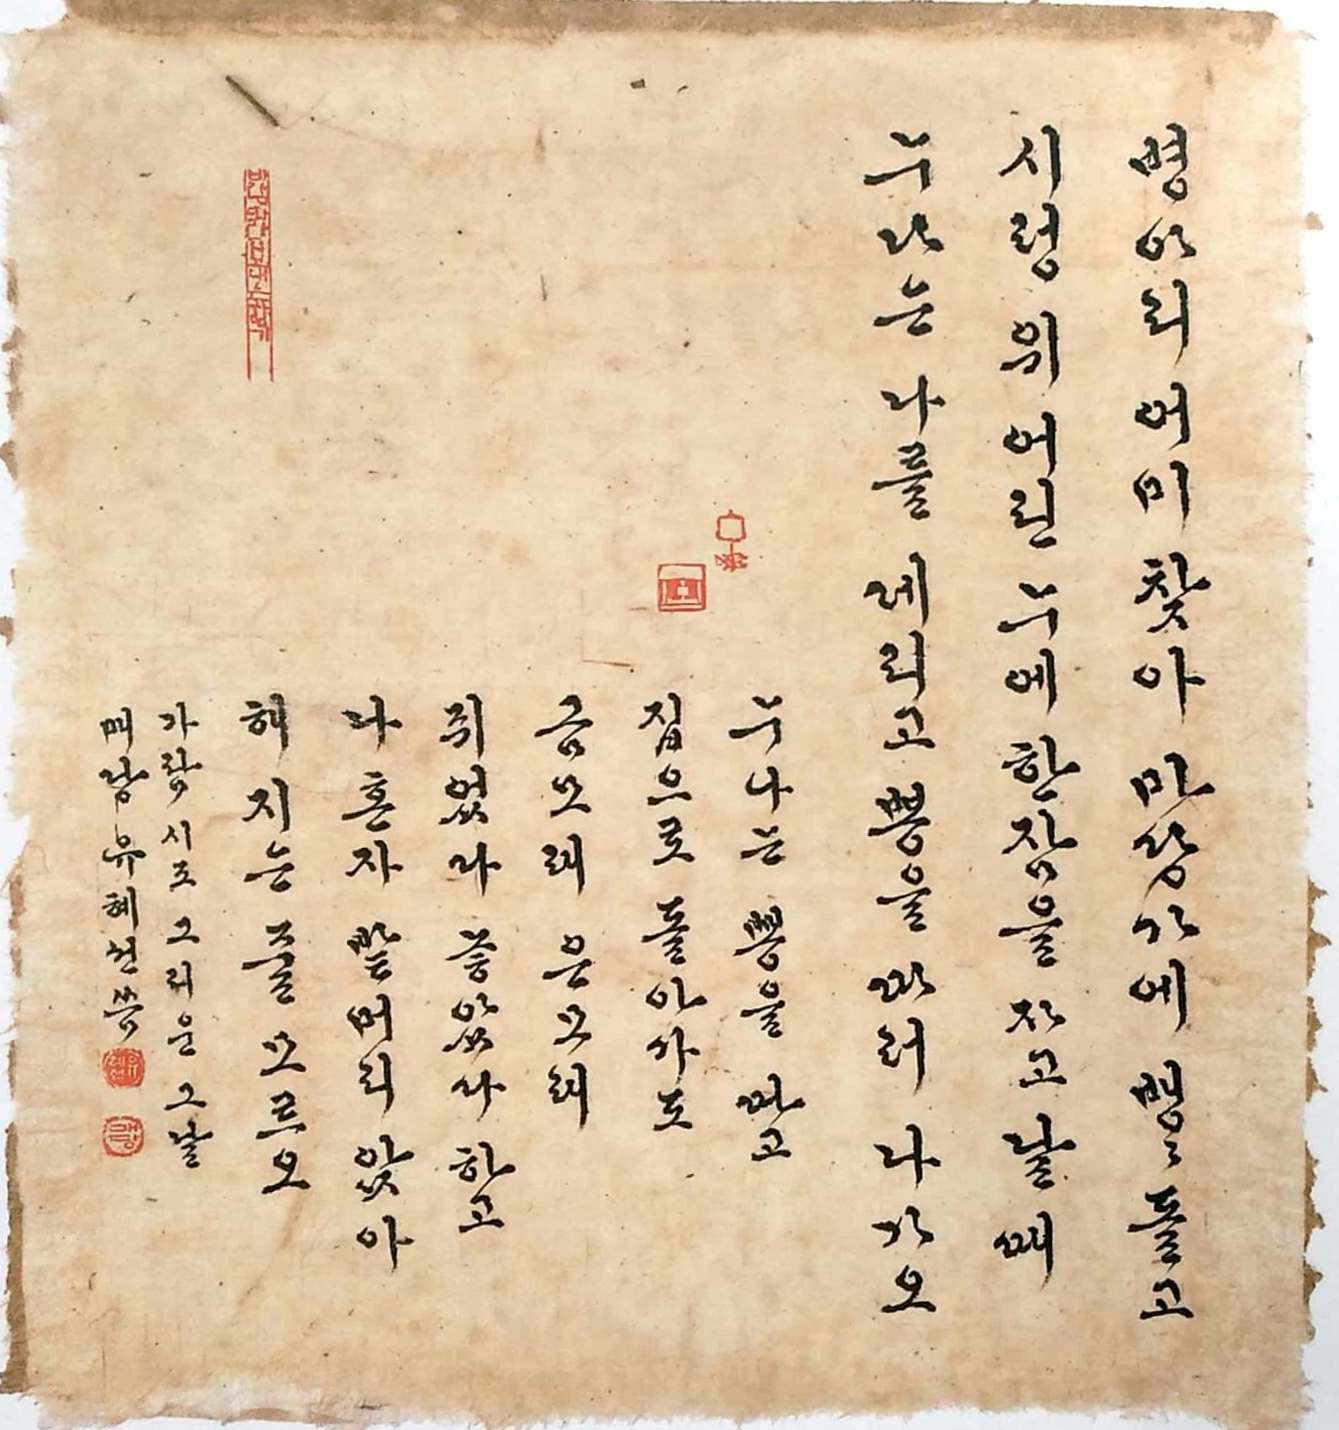 병아리 어미 찾아 마당가에 뱅〃 돌고
시렁 위 어린 누에 한잠을 자고 날 때
누나는 나를 데리고 뽕을 따러 나가오
누나는 뽕을 따고
집으로 돌아가도
금모래 은모래
쥐었다 놓았다 하고
나 혼자 밭머리 앉아
해 지는 줄 모르오
가람 시조 그리운 그날
유혜선 씀